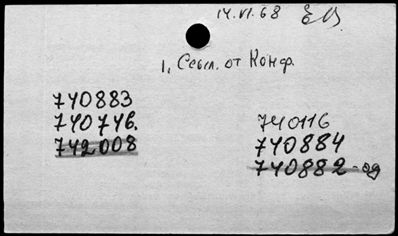 14.VI.68
1. Ссыл. от Конф.
740883
740746.
742008
740116
740884
740882-ад